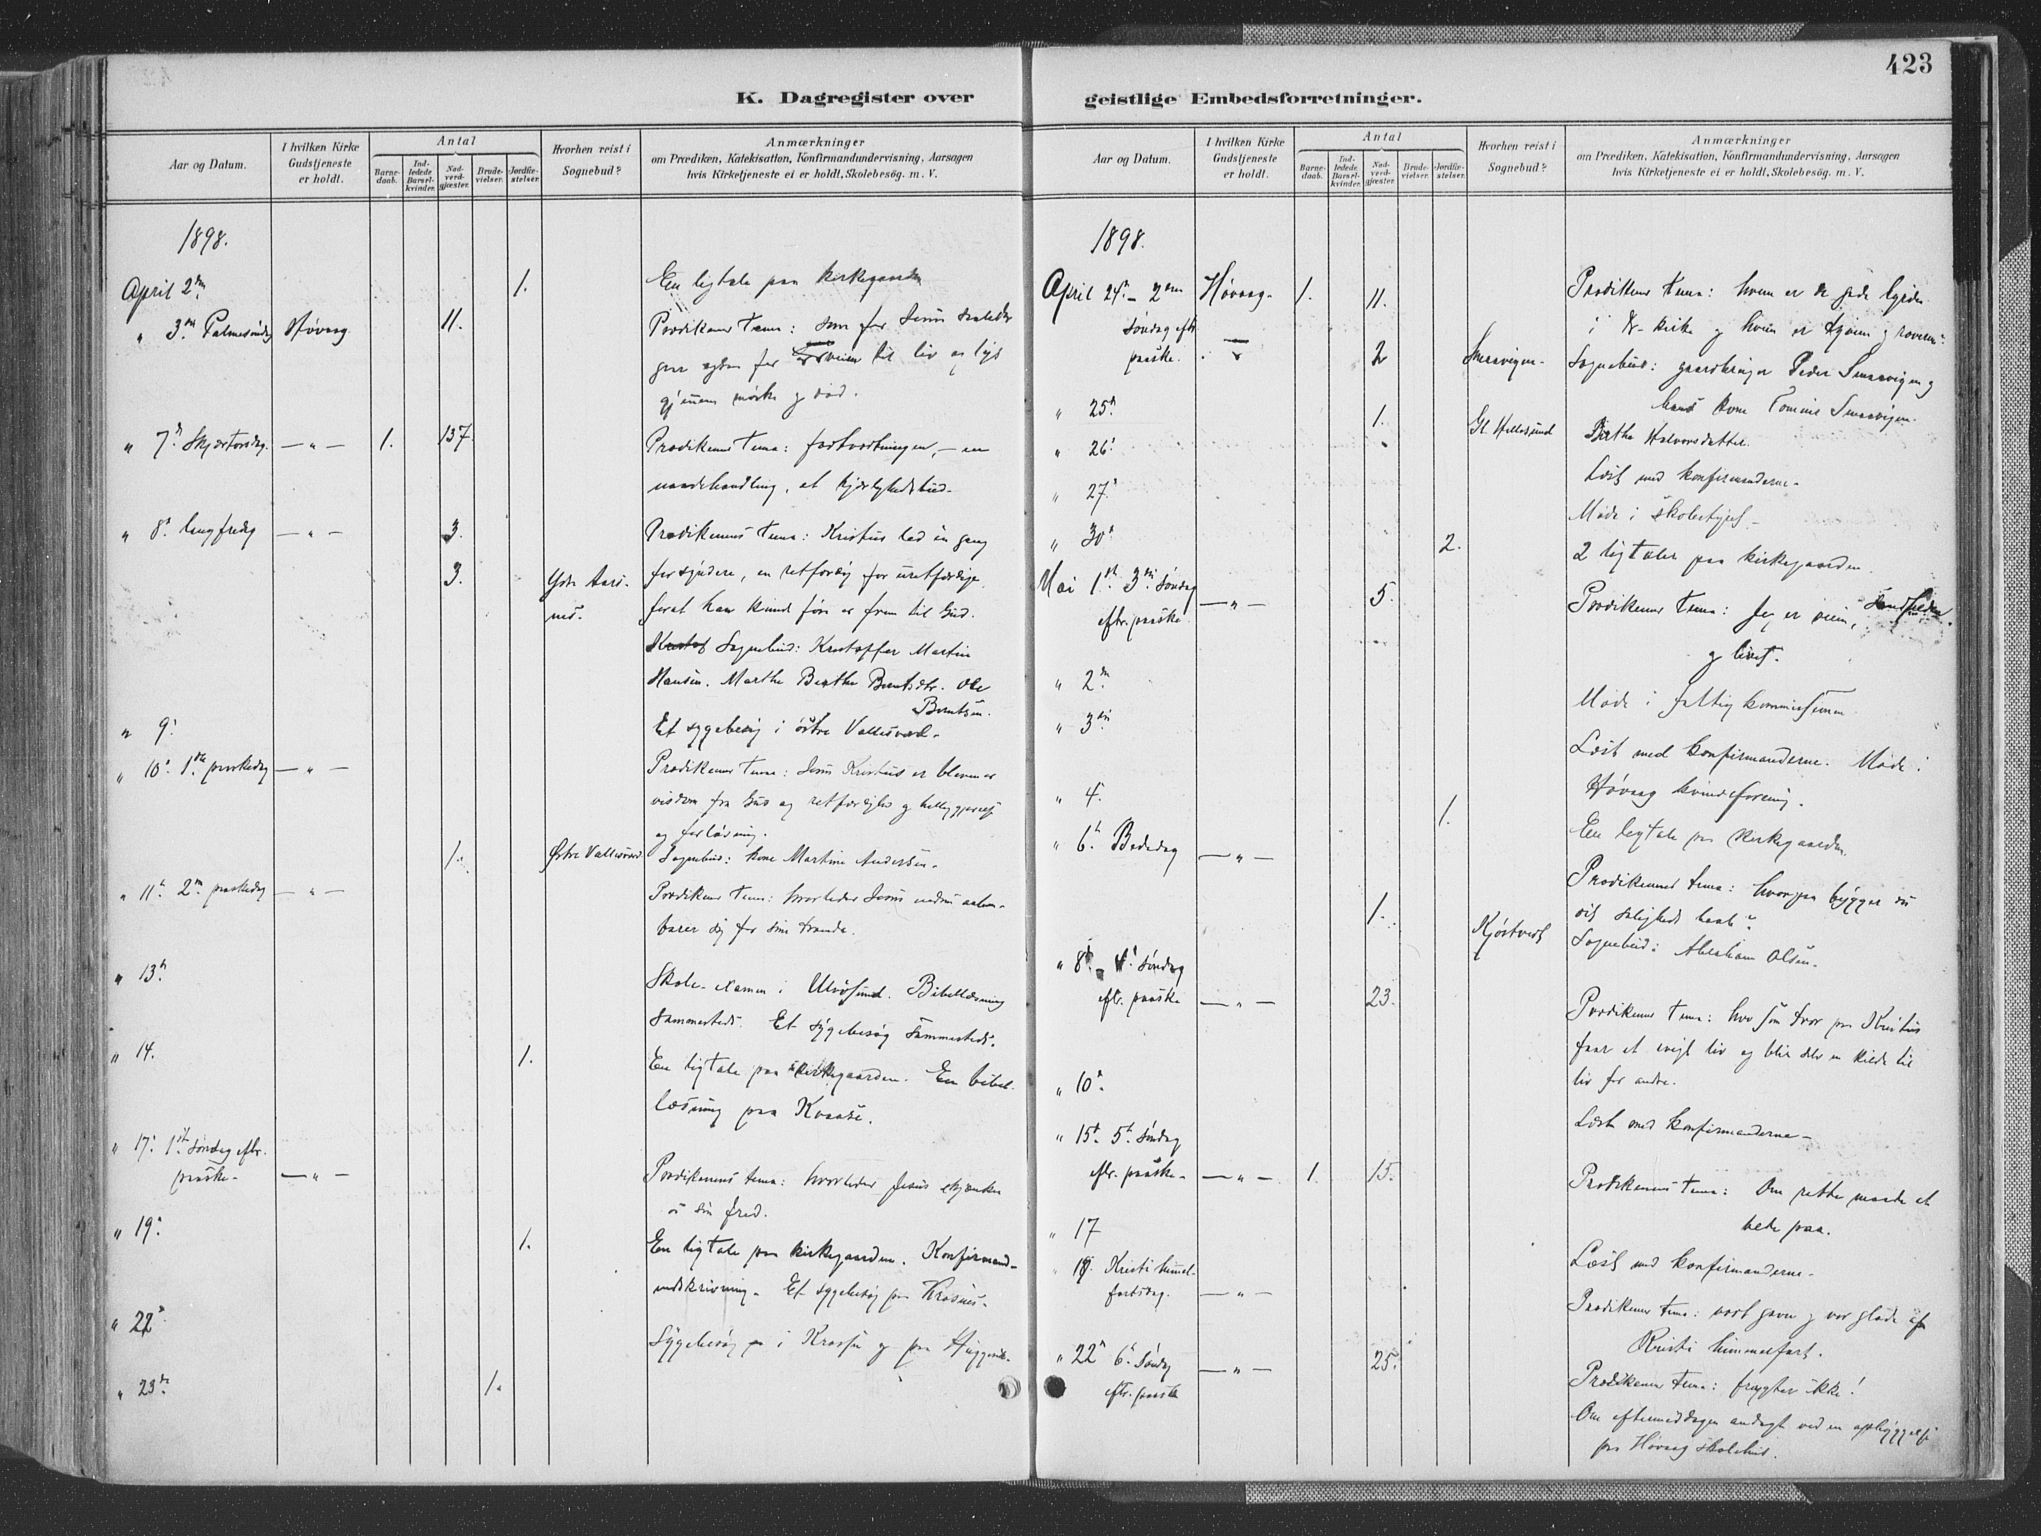 423
K. Dagregister over
geistlige Embedsforretninger.
Aar og Datum.
I hvilken Kirke Gudstjeneste er holdt.
Antal
Barnedaab.
Indledede Barselkvinder.
Nadverdgjæster.
Brudevielser.
Jordfæstelser.
Hvorhen reist i Sognebud?
Anmærkninger
om Prædiken, Katekisation, Konfirmandundervisning, Aarsagen
hvis Kirketjeneste ei er holdt, Skolebesøg. m. V.
1898.
April 2den 1. En ligtale paa kirkegaarden
" 3die Palmesøndag Høvaag 11. Prædikenens tema: som for Jesus saaledes
gaar ogsaa for os veien til liv og lys
gjennem mørke og død.
" 7de Skjærtorsdag. — " — 1. 137 Prædikenens tema: — en
naadehandling, et
" 8de langfredag — " — 3. Prædikenens tema: Kristus led en gang
3. Ydre Aars- for syndere, en retfærdig for uretfærdige
nes. forat han kunde føre os frem til Gud.
Sognebud: Kristoffer Martin
Hansen. Marthe Berthe Berntsdtr. Ole
Berntsen.
" 9. Et sygebesøg i østre Vallesværd.
" 10. 1ste paaskedag — " — Prædikenens tema: Jesus Kristus er bleven os
visdom fra Gud og retfærdighed og helliggjørelse
og forløsning.
1. Østre Vallesværd Sognebud: kone Martine Andersen.
" 11te 2den paaskedag — " — Prædikenens tema: hvorledes Jesus endnu aaben-
barer sig for sine
" 13de Skole-examen i Ulvøsund. Bibellæsning
sammesteds. Et sygebesøg sammesteds.
" 14. 1. En ligtale paa kirkegaarden. En bibel-
læsning paa Kvaase.
" 17. 1ste søndag eftr.
paaske. — " — Prædikenens tema: hvorledes Jesus skjænker
os sin fred.
" 19. 1. En ligtale paa kirkegaarden. Konfirmand-
indskrivning. Et sygebesøg paa
" 22 Sygebesøg i og paa
" 23de 1.
Aar og Datum.
I hvilken Kirke Gudstjeneste er holdt.
Antal
Barnedaab.
Indledede Barselkvinder.
Nadverdgjæster.
Brudevielser.
Jordfæstelser.
Hvorhen reist i Sognebud?
Anmærkninger
om Prædiken, Katekisation, Konfirmandundervisning, Aarsagen
hvis Kirketjeneste ei er holdt, Skolebesøg. m. V.
1898.
April 24de – 2den Høvaag. 1. 11. Prædikenens tema: hvem er de gode hyrder
søndag eftr. i kirke og hvem er tyven og røveren
paaske. 2 Smaavigen. Sognebud: gaardbruger Peder Smaavigen og
hans kone Tomine Smaavigen.
" 25de 1. Gl. Hellesund Berthe Halvorsdatter.
" 26. Læst med konfirmanderne.
" 27. Møde i skolestyret.
" 30te 2. 2 ligtaler paa kirkegaarden.
Mai 1ste 3die søndag — " — 5. Prædikenens tema: Jeg er veien, sandheden
eftr. paaske og livet.
" 2den Møde i fattigkommissionen
" 3die Læst med konfirmanderne. Møde i
Høvaag kvindeforening.
" 4. 1. En ligtale paa kirkegaarden.
" 6te Bededag — " — Prædikenens tema: hvorpaa bygger du
1. Kjøstvedt dit saligheds haab?
Sognebud: Abraham Olsen.
" 8de 4de søndag
eftr. paaske — " — 23. Prædikenens tema: hvo som tror paa Kristus
faar et evigt liv og blir selv en kilde til
liv for andre.
" 10de Læst med konfirmanderne.
" 15de 5te søndag
eftr. paaske. — " — 1. 15. Prædikenens tema: Den rette maade at
bede paa.
" 17 Læst med konfirmanderne.
" 19. Kristi himmel-
fartsdag. — " — Prædikenens tema: vort gavn og vor glæde af
Kristi himmelfart.
" 22de 6te søndag — " — 25. Prædikenens tema: frygter ikke!
eftr. paaske
Om eftermiddagen andagt ved en opbyggelse
paa Høvaag skolehus.